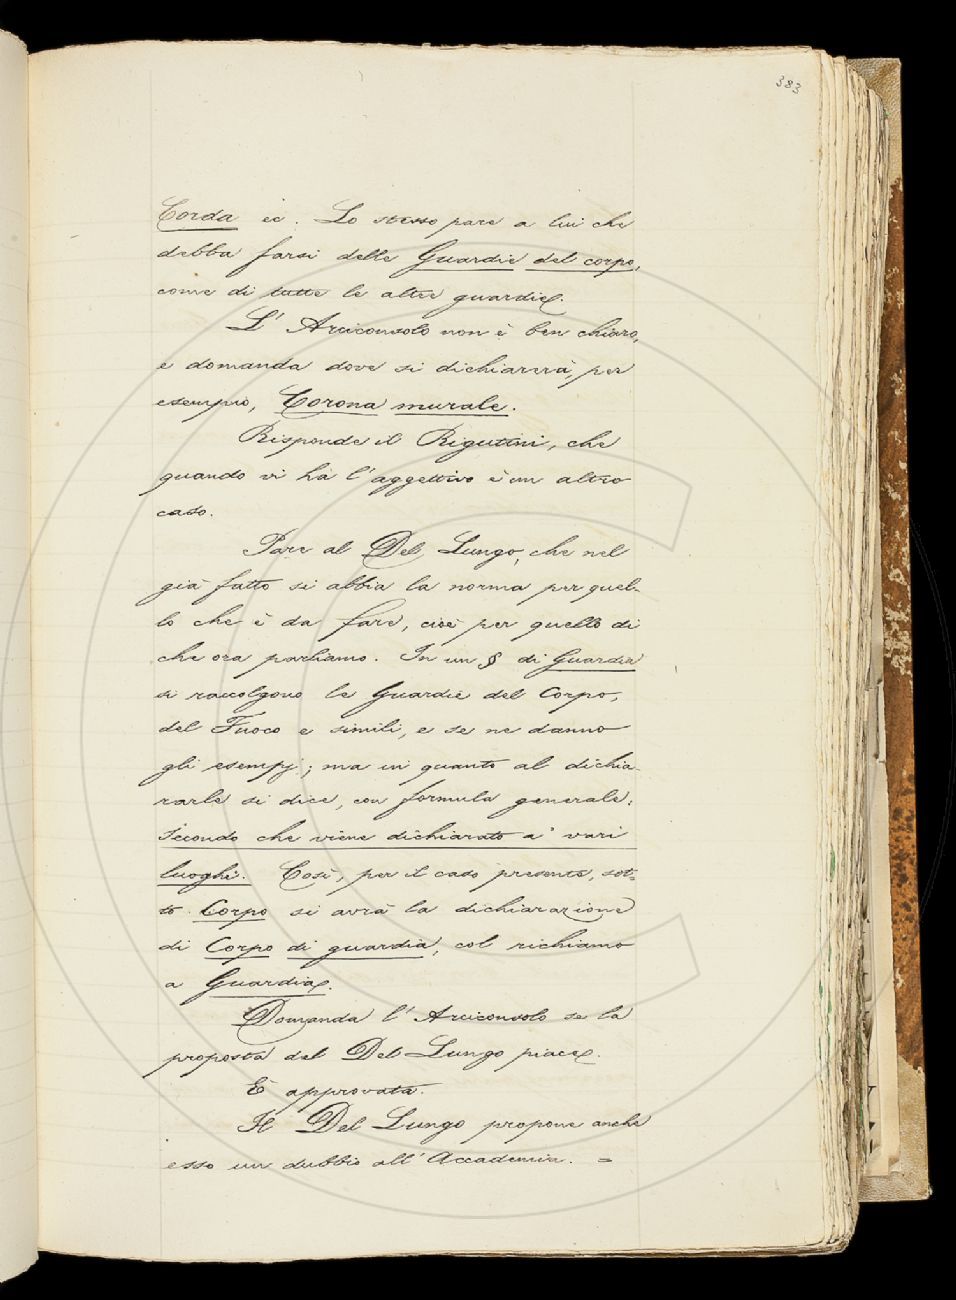 383
Corda ec. Lo stesso pare a lui che
debba farsi delle Guardie del corpo,
come di tutte le altre guardie.
L' Arciconsolo non è ben chiaro,
e domanda dove si dichiarerà, per
esempio, Corona murale.
Risponde il Rigutini, che
quando vi ha l'aggettivo è un altro
caso.
Pare al Del Lungo, che nel
già fatto si abbia la norma per quel-
lo che è da fare, cioè per quello di
che ora parliamo. In un § di Guardia
si raccolgono le Guardie del Corpo,
del Fuoco e simili, e se ne danno
gli esempj; ma in quanto al dichia-
rarle si dice, con formula generale:
Secondo che viene dichiarato a' vari
luoghi. Così, per il caso presente, sot-
to Corpo si avrà la dichiarazione
di Corpo di guardia, col richiamo
a Guardia.
Domanda l' Arciconsolo se la
proposta del Del Lungo piace.
È approvata.
Il Del Lungo propone anche
esso un dubbio all' Accademia. =